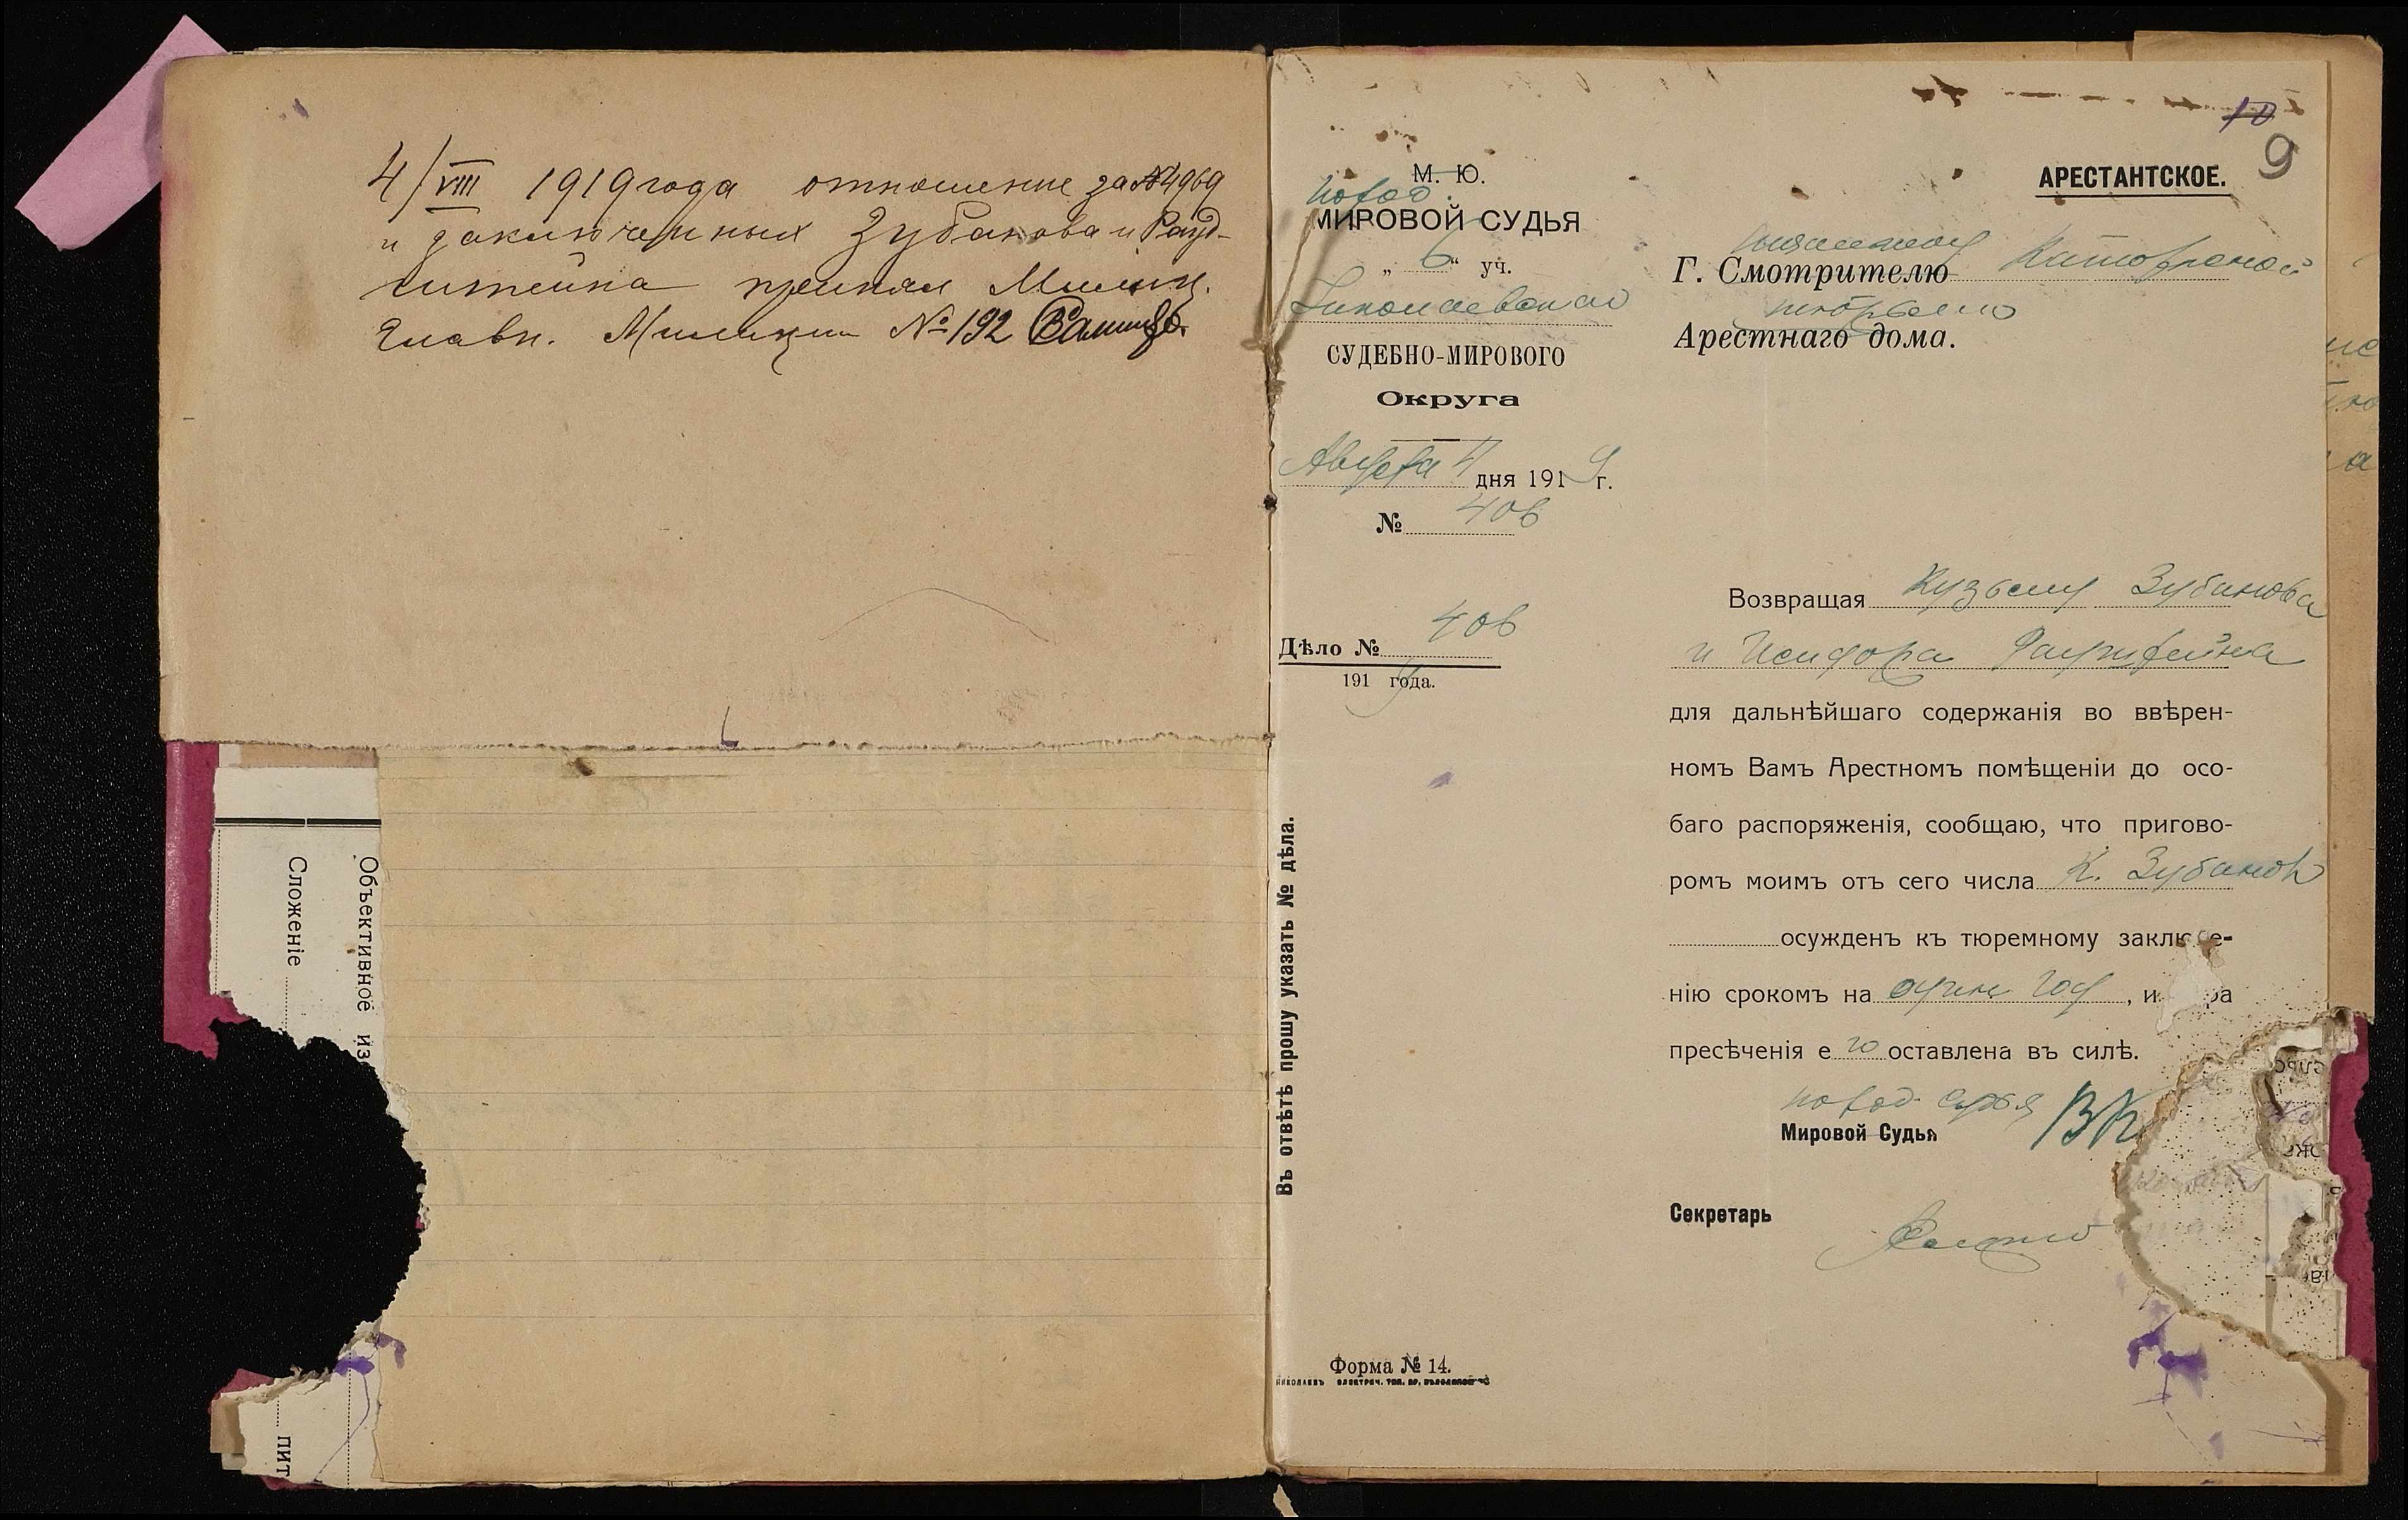 4/VIII 1919 года отношение за № 4969
и заключенных Зубанова и Рауд-
штейна принял Милиц.
Главн. Милиции № 192
Объективное из
Сложеніе
пит
10
9
АРЕСТАНТСКОЕ.
М. Ю.
народ.
МИРОВОЙ СУДЬЯ
„ 6 “ уч.
Николаевского
СУДЕБНО-МИРОВОГО
Округа
Августа 4 дня 1919 г.
№ 406
Дѣло № 406
1919 года.
Въ отвѣтѣ прошу указать № дѣла.
Форма № 14.
начальнику
Г. Смотрителю Каторжной
тюрьмы
Арестнаго дома.
Возвращая Кузьму Зубанова
и Исидора Раудштейна
для дальнѣйшаго содержанія во ввѣрен-
номъ Вамъ Арестномъ помѣщеніи до осо-
баго распоряженія, сообщаю, что пригово-
ромъ моимъ отъ сего числа К. Зубанов
осужденъ къ тюремному заключе-
нію срокомъ на один год, и ра
пресѣченія его оставлена въ силѣ.
народ. судья
Мировой Судья
Секретарь